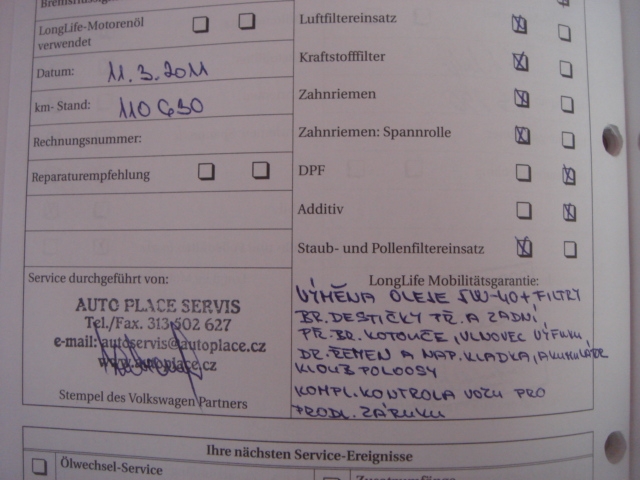 LongLife-Motorenöl
verwendet
Datum: 11.3.2011
km- Stand: 110 630
Rechnungsnummer:
Reparaturempfehlung
Service durchgeführt von:
AUTO PLACE SERVIS
Tel./Fax. 313 502 627
e-mail: autoservis@autoplace.cz
www.autoplace.cz
Stempel des Volkswagen Partners
Luftfiltereinsatz
Kraftstofffilter
Zahnriemen
Zahnriemen: Spannrolle
DPF
Additiv
Staub- und Pollenfiltereinsatz
LongLife Mobilitätsgarantie:
VÝMĚNA OLEJE 5W-40+FILTRY
BR.DESTIČKY PŘ. A ZADNÍ,
PŘ.BR.KOTOUČE, VLNOVEC VÝFUKU,
DR.ŘEMEN A NAP. KLADKA, AKUMULÁTOR
KLOUB POLOOSY
KOMPL.KONTROLA VOZU PRO
PRODL. ZÁRUKU
Ihre nächsten Service-Ereignisse
Ölwechsel-Service